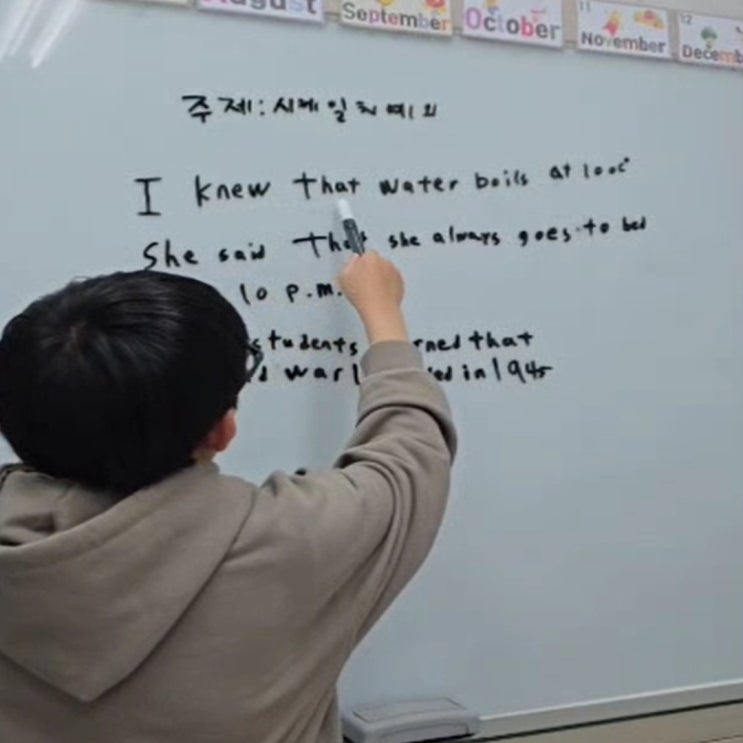 August
September
October
11
November
12
Decemb
주제: 시제일치예외
I knew that water boils at 100c°
She said that she always goes to bed
10 p.m.
students rned that
war ed in 1945